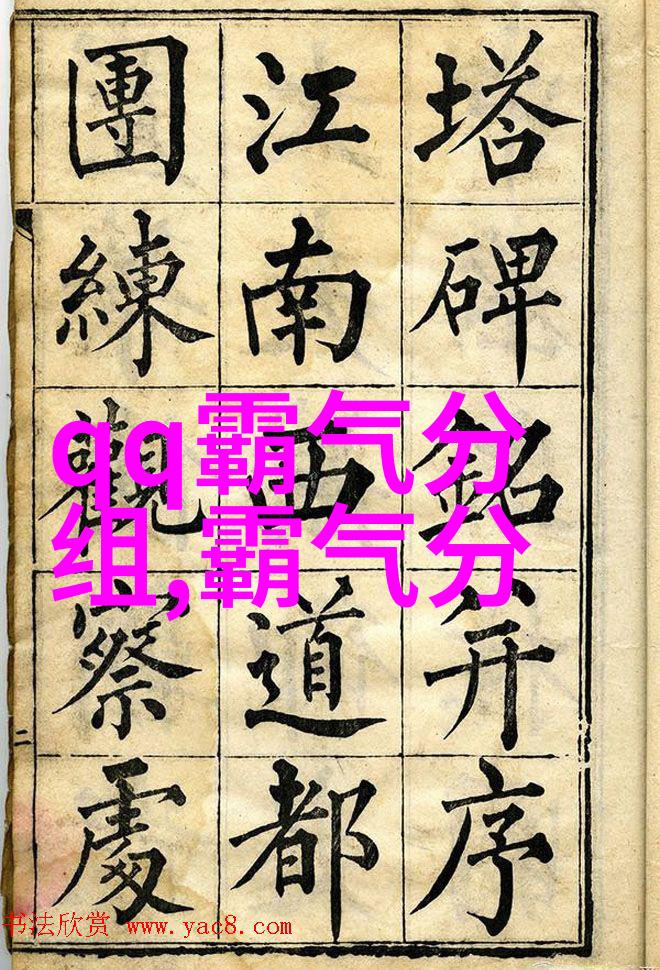 塔碑銘并序
江南西道都
團練觀察處
二
qq霸气分
组,霸气分
书法欣赏 www.yac8.com